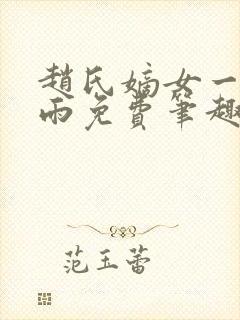 趙氏嫡女一
雨免費筆趣
范玉蕾